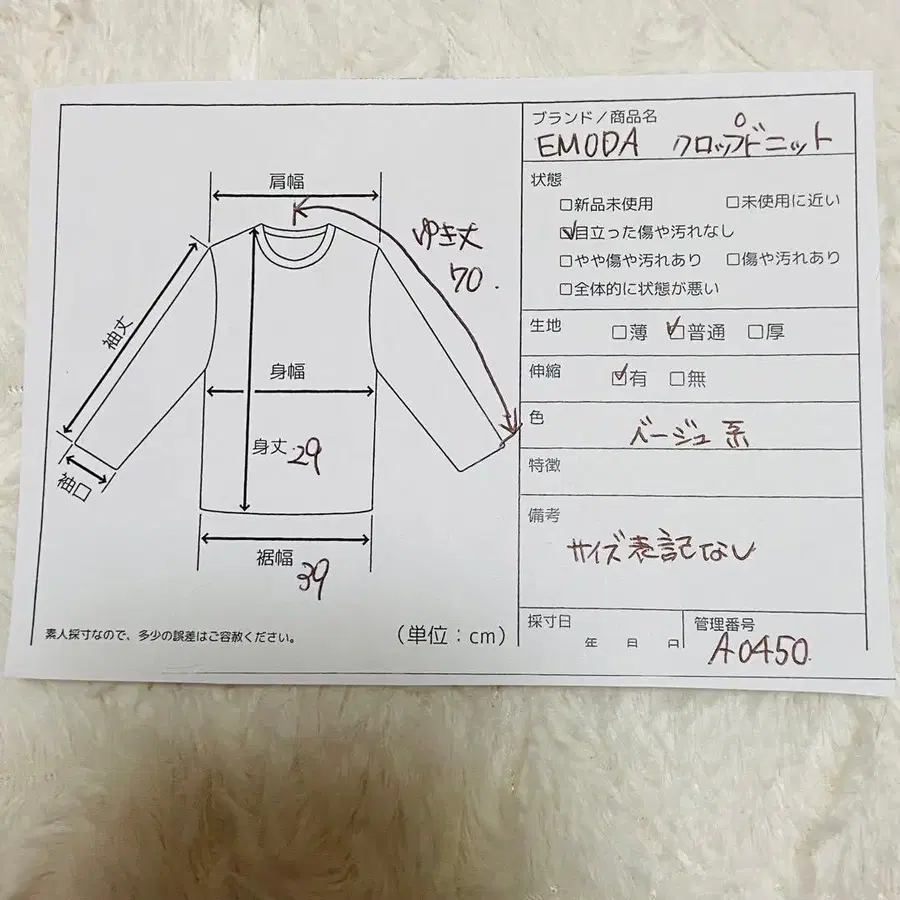 肩幅
ゆき丈
70.
袖丈
身幅
身丈 29
袖口
裾幅
39
素人採寸なので、多少の誤差はご容赦ください。
(単位:cm)
ブランド/商品名
EMODA クロップドニット
状態
□新品未使用 □未使用に近い
☑目立った傷や汚れなし
□やや傷や汚れあり □傷や汚れあり
□全体的に状態が悪い
生地 □薄 ☑普通 □厚
伸縮 ☑有 □無
色
ベージュ系
特徴
備考
サイズ表記なし
採寸日
年 日 日
管理番号
A0450.